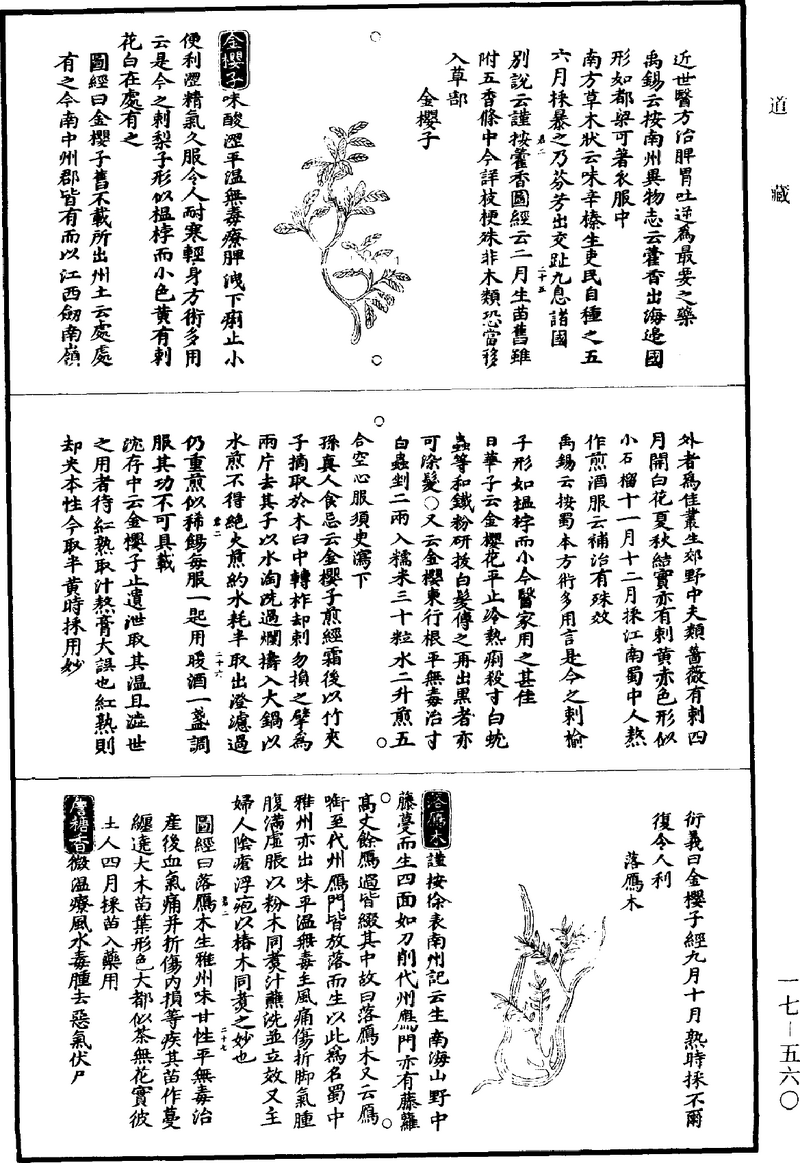 道藏
近世醫方治脾胃吐逆爲最要之藥
禹錫云按南州異物志云藿香出海邊國
形如都梁可著衣服中
南方草木狀云味辛榛生吏民自種之五
六月採暴之乃芬芳出交趾九息諸國
君二
二十五
別說云謹按藿香圖經云二月生苗舊雖
附五香條中今詳枝梗殊非木類恐當移
入草部
金櫻子
金櫻子味酸澀平溫無毒療脾洩下痢止小
便利澀精氣久服令人耐寒輕身方術多用
云是今之刺梨子形似榅桲而小色黃有刺
花白在處有之
圖經曰金櫻子舊不載所出州土云處處
有之今南中州郡皆有而以江西劒南嶺
外者爲佳叢生郊野中夫類薔薇有刺四
月開白花夏秋結實亦有刺黃赤色形似
小石榴十一月十二月採江南蜀中人熬
作煎酒服云補治有殊效
禹錫云按蜀本方術多用言是今之刺榆
子形如榅桲而小今醫家用之甚佳
日華子云金櫻花平止冷熱痢殺寸白蚘
蟲等和鐵粉研拔白髮傅之再出黑者亦
可染髮○又云金櫻東行根平無毒治寸
白蟲剉二兩入糯米三十粒水二升煎五
合空心服須臾瀉下
孫真人食忌云金櫻子煎經霜後以竹夾
子摘取於木臼中轉杵却刺勿損之擘爲
兩片去其子以水淘洗過爛擣入大鍋以
水煎不得絶火煎約水耗半取出澄濾過
君二
二十六
仍重煎似稀餳每服一匙用暖酒一盞調
服其功不可具載
沈存中云金櫻子止遺泄取其溫且澁世
之用者待紅熟取汁熬膏大誤也紅熟則
却失本性今取半黃時採用妙
衍義曰金櫻子經九月十月熟時採不爾
復令人利
落鴈木
落鴈木謹按徐表南州記云生南海山野中
藤蔓而生四面如刀削代州鴈門亦有藤蘿
高丈餘鴈過皆綴其中故曰落鴈木又云鴈
銜至代州鴈門皆放落而生以此爲名蜀中
雅州亦出味平溫無毒主風痛傷折脚氣腫
腹滿虛脹以粉木同煑汁蘸洗並立效又主
婦人陰瘡浮疱以椿木同煑之妙也
圖經曰落鴈木生雅州味甘性平無毒治
君二
二十七
產後血氣痛并折傷內損等疾其苗作蔓
纏遶大木苗葉形色大都似茶無花實彼
土人四月採苗入藥用
詹糖香微溫療風水毒腫去惡氣伏尸
一七－五六○